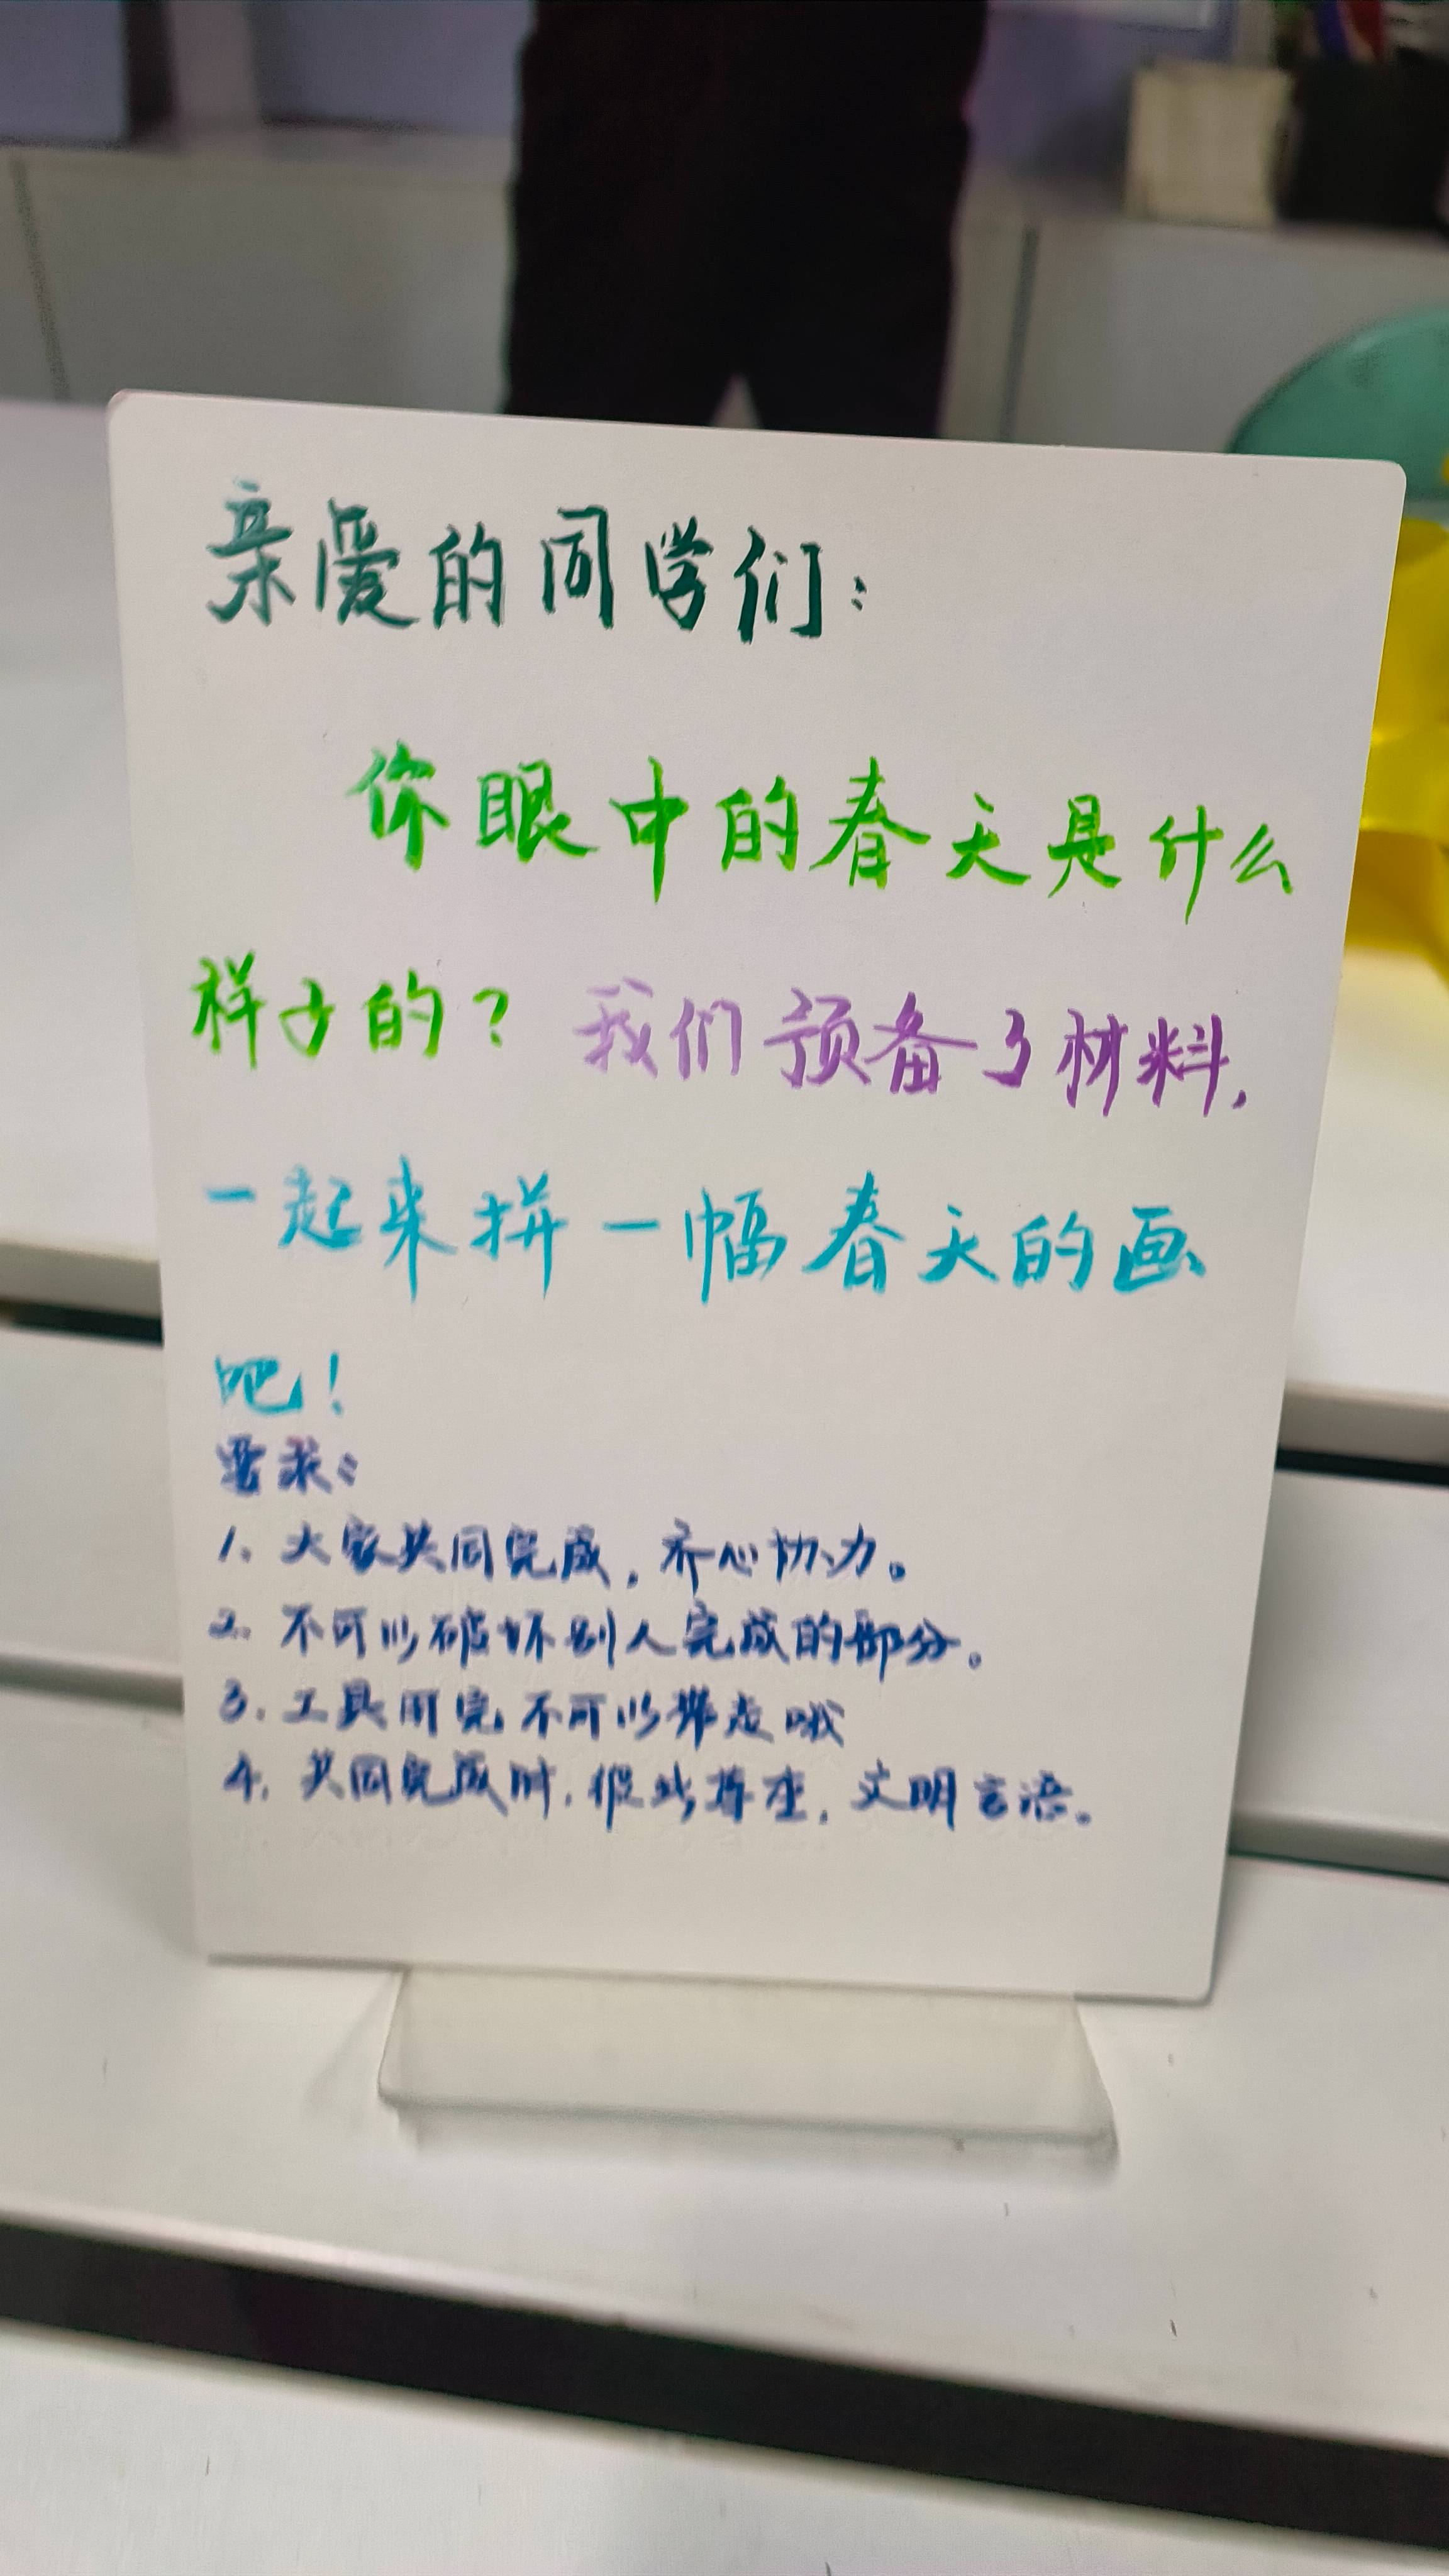 亲爱的同学们：
你眼中的春天是什么
样子的？我们预备了材料，
一起来拼一幅春天的画
吧！
要求：
1、大家共同完成，齐心协力。
2、不可以破坏别人完成的部分。
3、工具用完不可以带走哦
4、共同完成时，彼此尊重，文明言语。